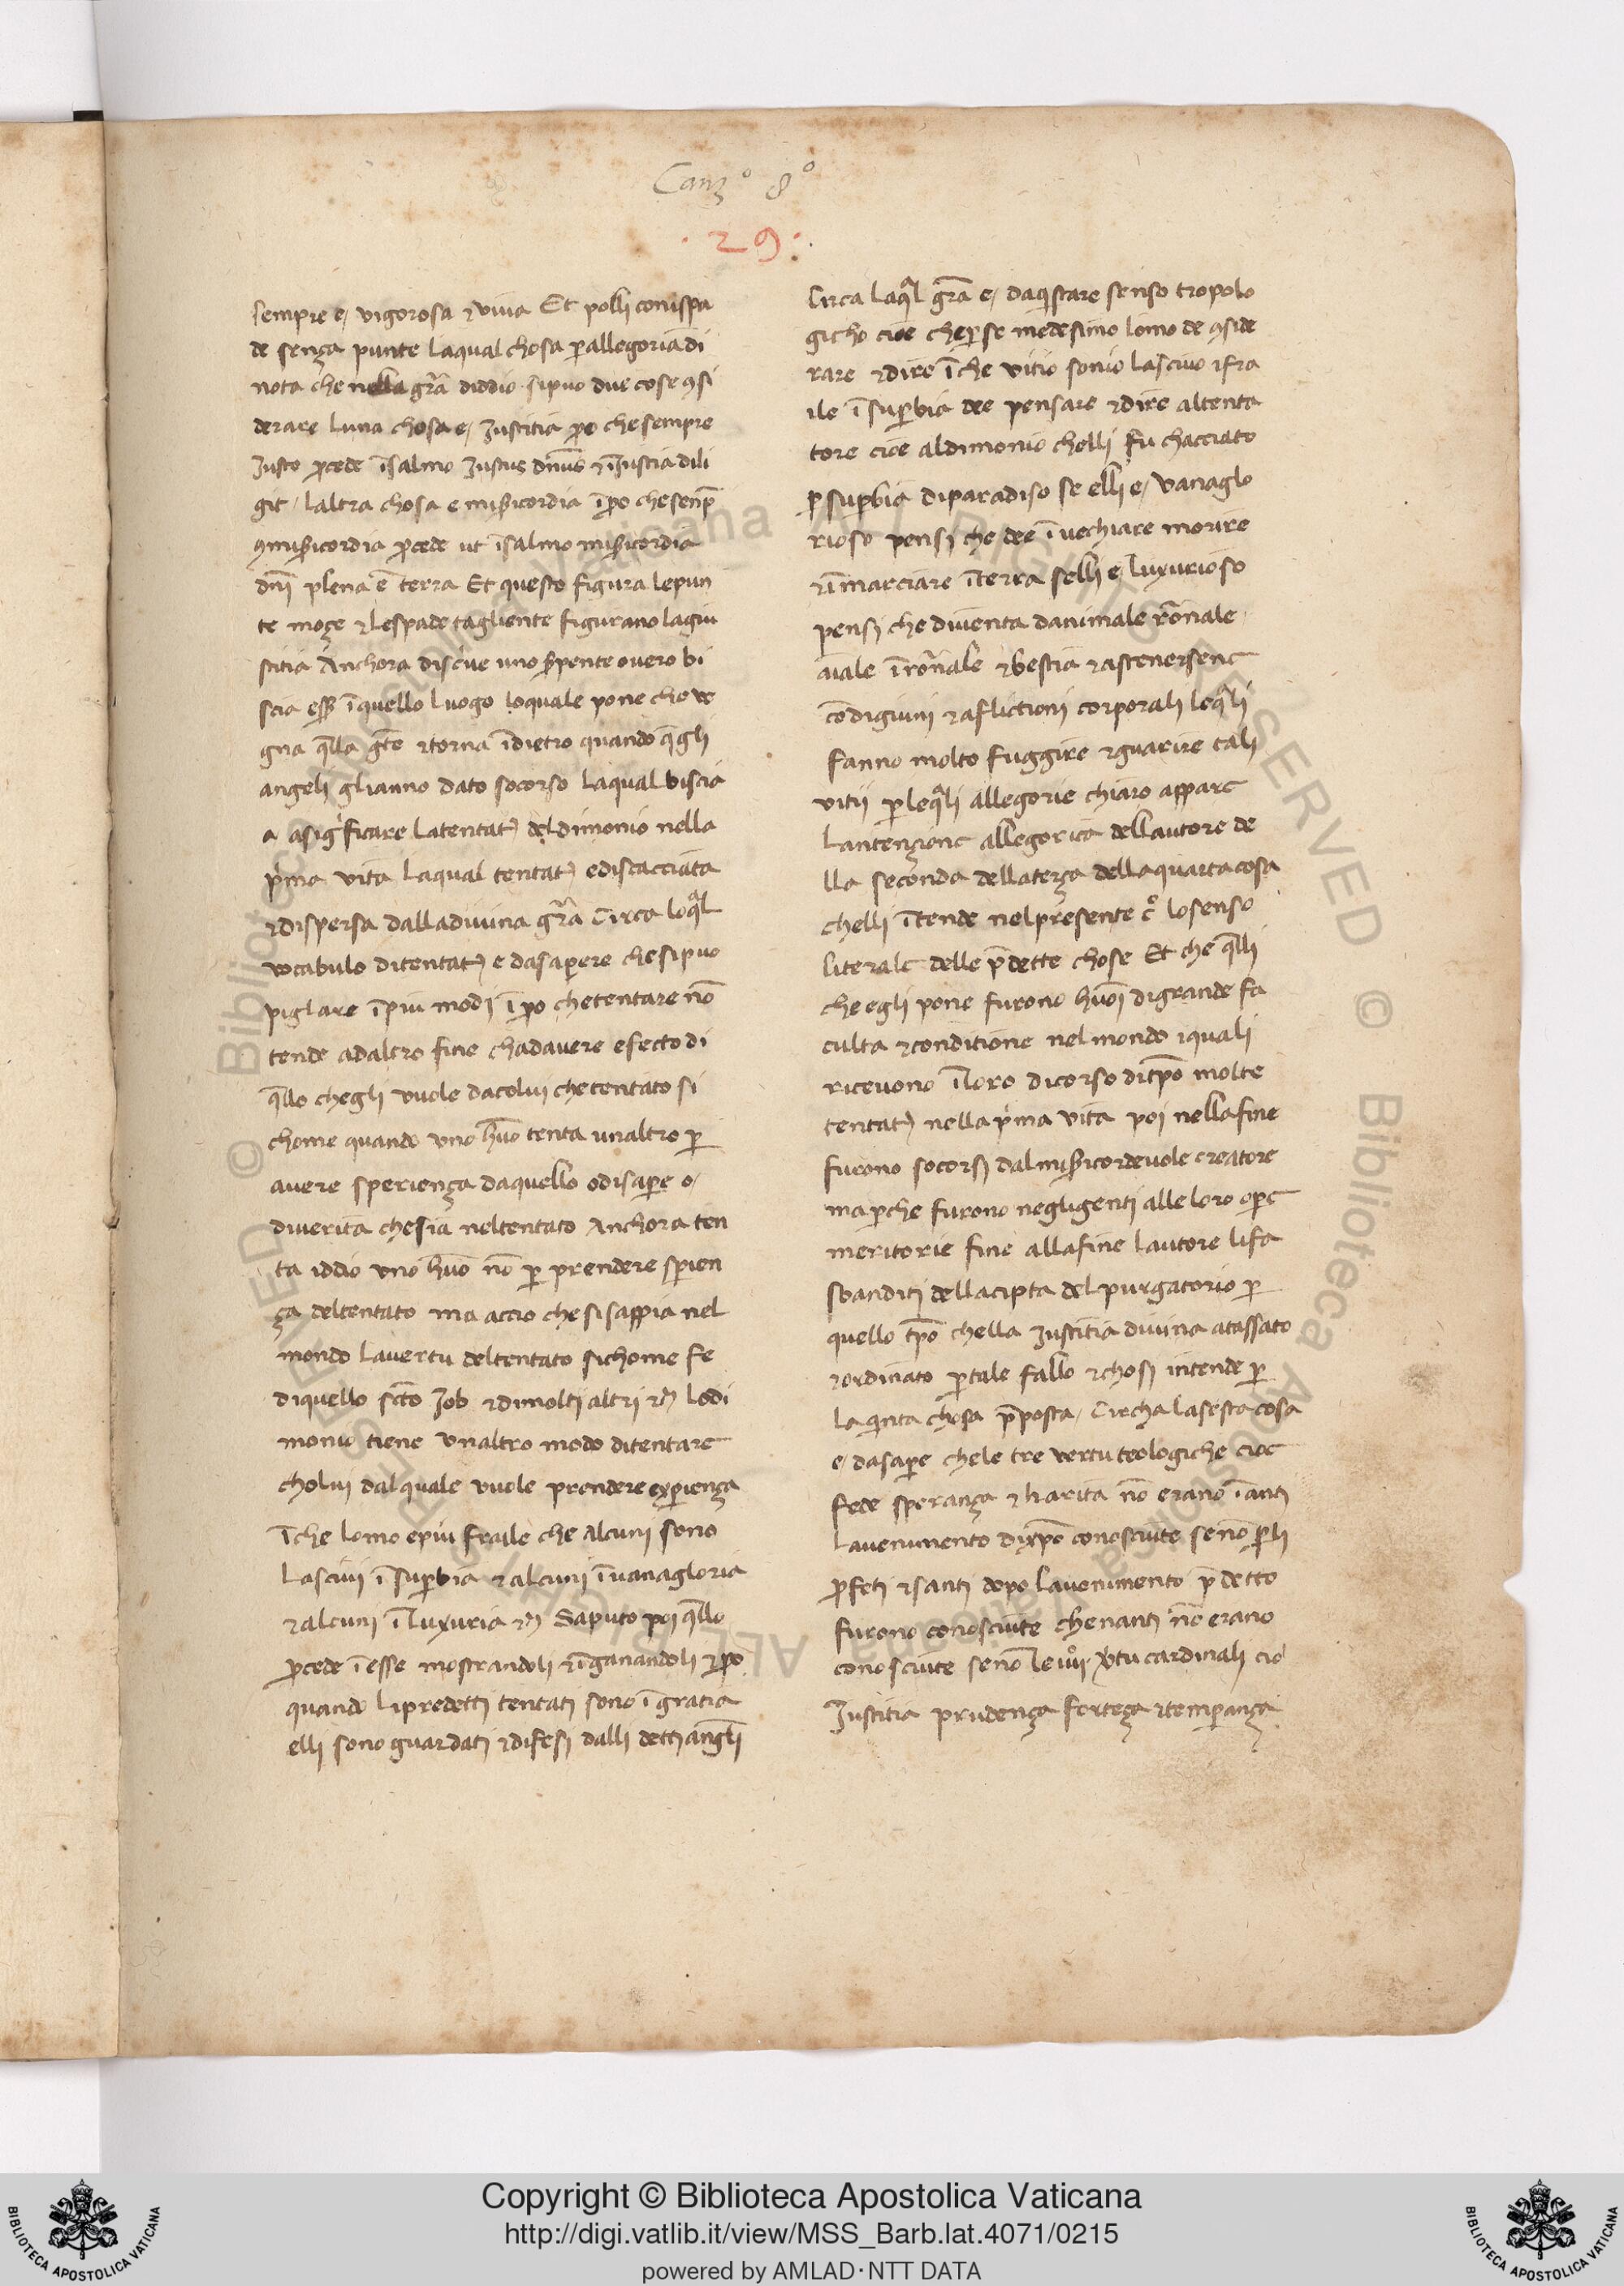 Canz° 8°
· 29 :
sempre e, vigorosa ⁊ viva Et polli conispa
de senza punte laqual chosa ꝑ allegoria di
nota che nella gr̃a diddio sipuo due cose ꝯsi
derare luna chosa e, Justitia ꝑo che sempre
Justo ꝓcede ĩsalmo Justus dñus dili
git, laltra chosa e mis̃icordia ĩꝑo che senp̃
ꝯ mis̃icordia ꝓcede ut ĩsalmo mis̃icordia
dñi plena ẽ terra Et questo figura le pun
te moze ⁊ le spade tagliente figurano lagiu
stitia Anchora discr̃ive uno s̃pente overo bi
scia ess̃ ĩquello luogo loquale pone che ve
gna q̃lla gẽte ⁊ torna ĩdietro quando q̃gli
angeli glianno dato socorso laqual biscia
a asig̃ficare la tentatꝫ del dimonio nella
p̃ma vita laqual tentatꝫ e discacciata
⁊ dispersa dalla divina gr̃a Circa loq̃l
vocabulo di tentatꝫ e dasaꝑere che sipuo
piglare ĩpiu modi ĩꝑo che tentare nõ
tende adaltro fine chadavere efecto di
q̃llo chegli vuole dacolui che tentato si
chome quando uno hũo tenta unaltro ꝑ
avere sperienza daquello odisaꝑe o,
diverita che sia neltentato Anchora ten
ta iddio uno hũo nõ ꝑ prendere sꝑien
za deltentato ma accio che si sappia nel
mondo lavertu deltentato sichome fe
diquello sc̃to Job ⁊ dimolti altri ⁊ꝫ lodi
monio tiene unaltro modo ditentare
cholui dalquale vuole prendere exꝑienza
ĩche lomo epiu fraile che alcuni sono
lascivi ĩ suꝑbia ⁊ alcuni ĩ vanagloria
⁊ alcuni ĩ luxuria ⁊ꝫ Saputo poi q̃llo
ꝓcede ĩ esse mostrandoli ⁊ ĩganandoli ⁊ ꝑo
quando li predetti tentati sono ĩ gratia
elli sono guardati ⁊ difesi dalli detti angl̃i
Circa laq̃l gr̃a e, daq̃stare senso tropolo
gicho cioe che ꝑ se medesimo lomo de ꝯside
rare ⁊ dire ĩche vitio sono lascivo ⁊ fra
ile ĩ suꝑbia dee pensare ⁊ dire al tenta
tore cioe aldimonio chelli fu chacciato
ꝑ suꝑbia diparadiso se elli e, vanaglo
rioso pensi che dee ĩvechiare morire
⁊ ĩmarciare ĩterra selli e, luxurioso
pensi che diventa danimale rõnale
aĩale ĩrõnale ⁊ bestia ⁊ astenersene
cõ digiuni ⁊ aflictioni corporali leq̃li
fanno molto fuggire ⁊ guarire tali
vitii ꝑ leq̃li allegorie chiaro appare
lantenzione allegorica dellautore de
lla seconda della terza della quarta cosa
chelli ĩtende nel presente c̊ lo senso
literale delle p̃dette chose Et che q̃lli
che egli pone furono hũoĩ digrande fa
culta ⁊ conditione nel mondo iquali
ricevono ĩ loro dicorso ditp̃o molte
tentatꝫ nella p̃ma vita poi nella fine
furono socorsi dal mis̃icordevole creatore
ma ꝑche furono negligenti alle loro oꝑe
meritorie fine allafine lautore li fa
sbanditi della cipta del purgatorio ꝑ
quello tp̃o chella Justitia divina a tassato
⁊ ordinato ꝑ tale fallo ⁊ chosi intende ꝑ
la q̃nta chosa p̃posta, Circha lasesta cosa
e, dasaꝑe che le tre vertu teologiche cioe
fede speranza ⁊ charita nõ erano ĩanti
lavenimento dixp̃o conosciute senõ ꝑli
ꝓfeti ⁊ santi dopo lavenimento p̃detto
furono conosciute che nanti nõ erano
conosciute senõ le iiij v̾tu cardinali cio
Justitia prudenza forteza ⁊ temꝑanza
Copyright © Biblioteca Apostolica Vaticana
http://digi.vatlib.it/view/MSS_Barb.lat.4071/0215
powered by AMLAD·NTT DATA